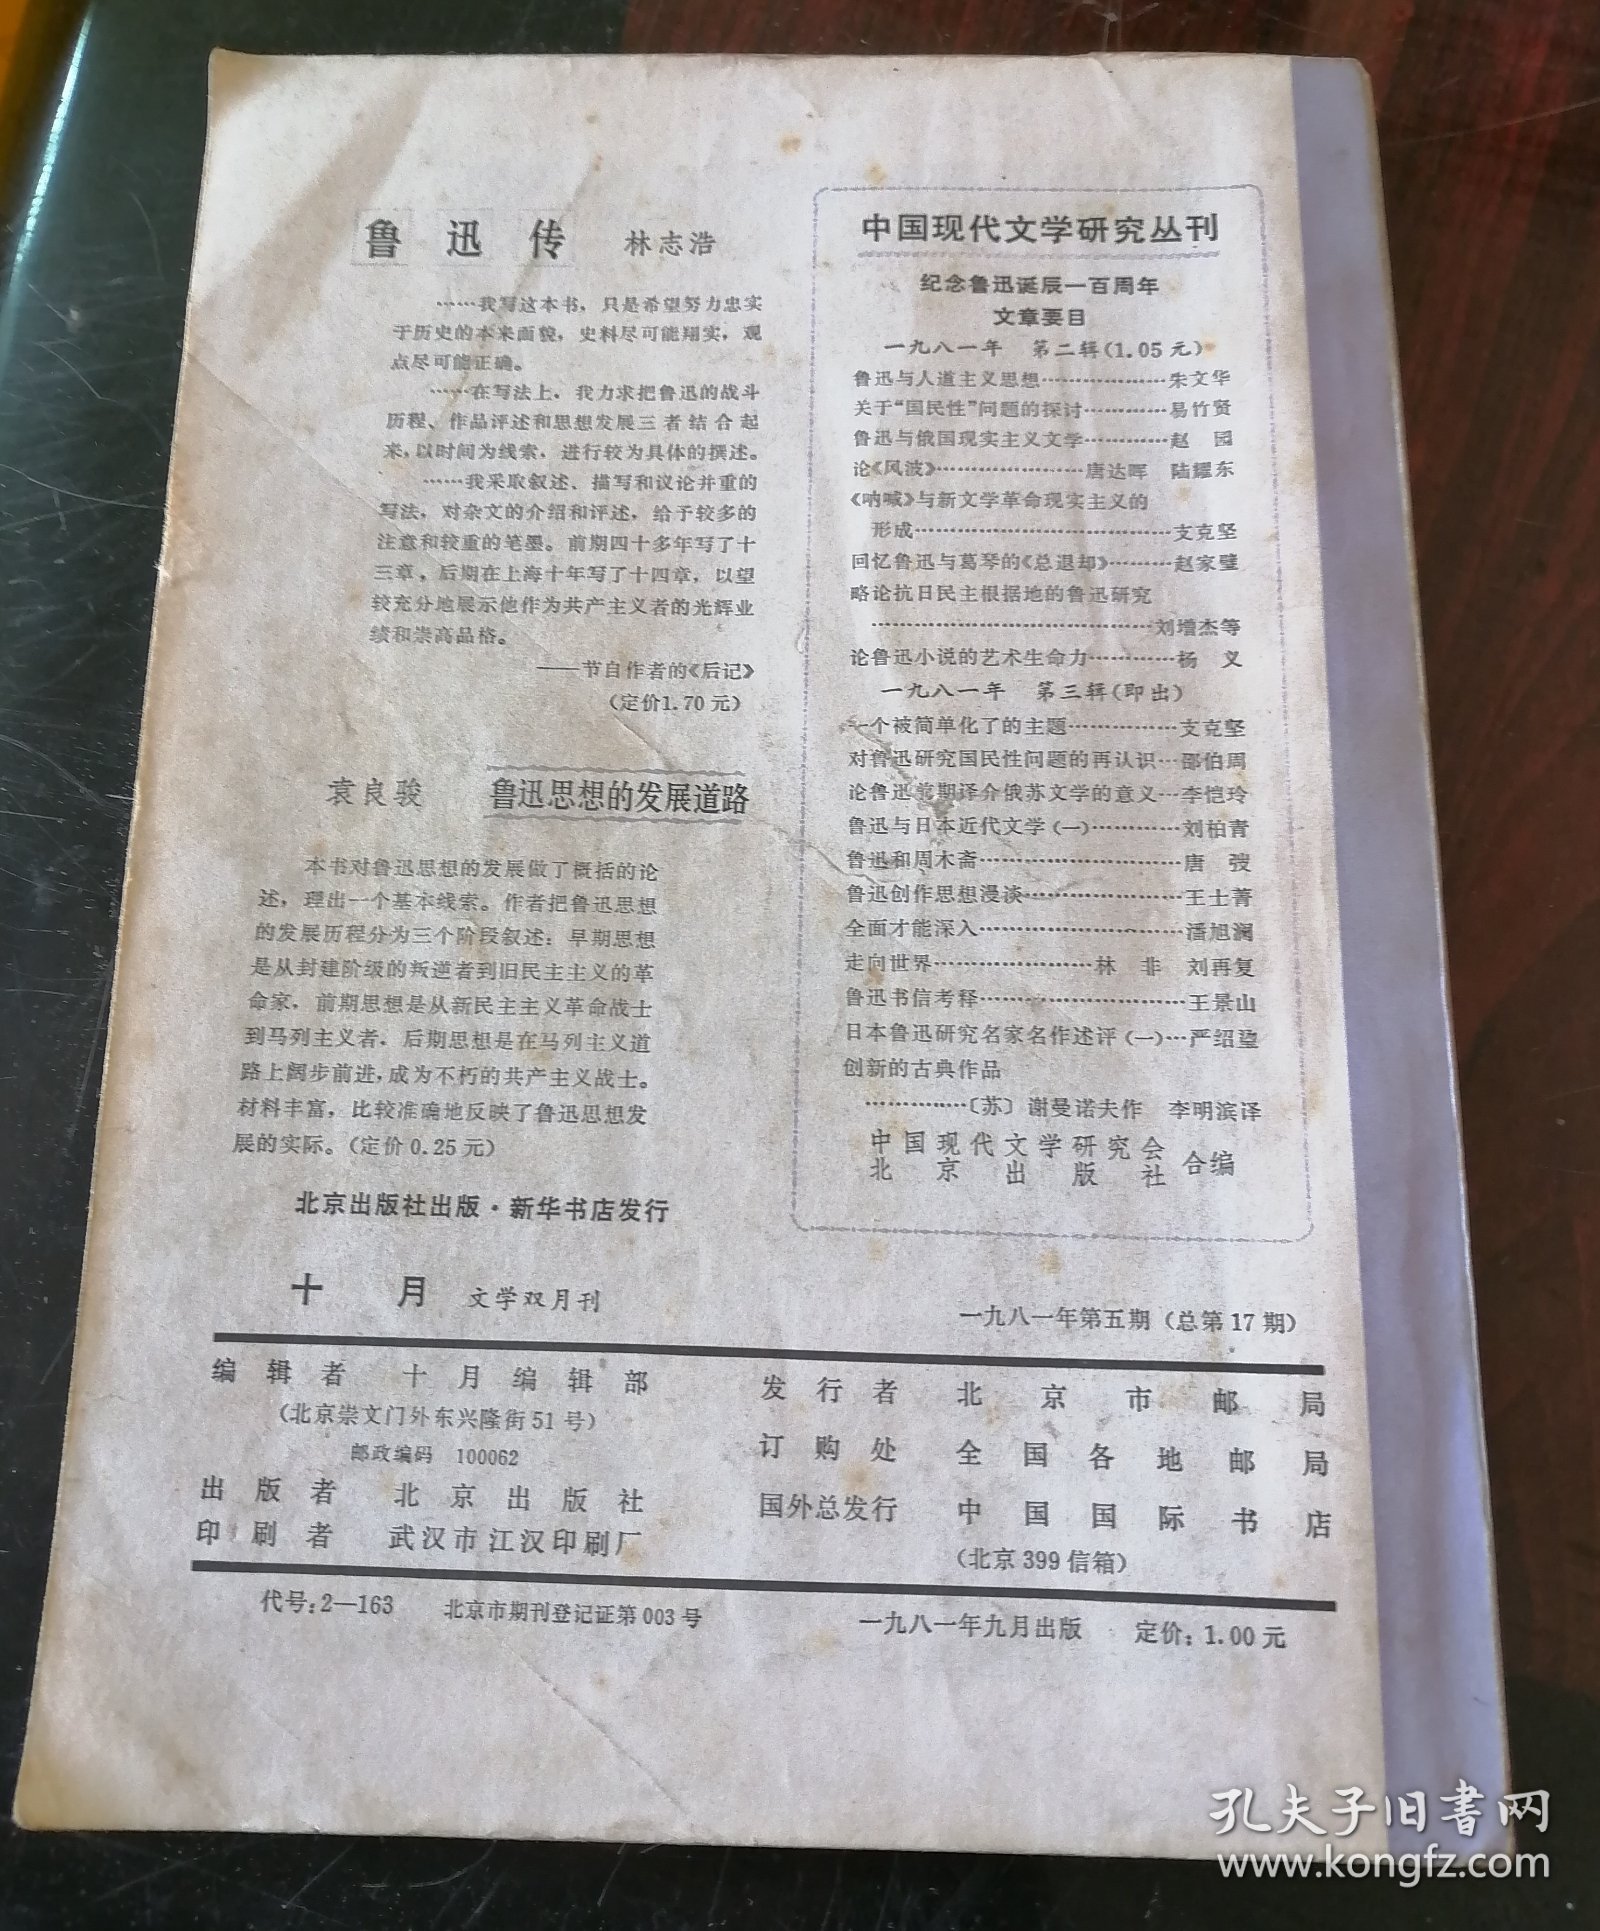 鲁迅传 林志浩
……我写这本书，只是希望努力忠实
于历史的本来面貌，史料尽可能翔实，观
点尽可能正确。
……在写法上，我力求把鲁迅的战斗
历程、作品评述和思想发展三者结合起
来，以时间为线索，进行较为具体的撰述。
……我采取叙述、描写和议论并重的
写法，对杂文的介绍和评述，给予较多的
注意和较重的笔墨。前期四十多年写了十
三章，后期在上海十年写了十四章，以望
较充分地展示他作为共产主义者的光辉业
绩和崇高品格。
——节自作者的《后记》
（定价1.70元）
袁良骏 鲁迅思想的发展道路
本书对鲁迅思想的发展做了概括的论
述，理出一个基本线索。作者把鲁迅思想
的发展历程分为三个阶段叙述：早期思想
是从封建阶级的叛逆者到旧民主主义的革
命家，前期思想是从新民主主义革命战士
到马列主义者，后期思想是在马列主义道
路上阔步前进，成为不朽的共产主义战士。
材料丰富，比较准确地反映了鲁迅思想发
展的实际。（定价0.25元）
北京出版社出版·新华书店发行
中国现代文学研究丛刊
纪念鲁迅诞辰一百周年
文章要目
一九八一年 第二辑（1.05元）
鲁迅与人道主义思想………………朱文华
关于“国民性”问题的探讨…………易竹贤
鲁迅与俄国现实主义文学…………赵 园
论《风波》…………………唐达晖 陆耀东
《呐喊》与新文学革命现实主义的
形成………………………………支克坚
回忆鲁迅与葛琴的《总退却》………赵家璧
略论抗日民主根据地的鲁迅研究
…………………………………刘增杰等
论鲁迅小说的艺术生命力…………杨 义
一九八一年 第三辑（即出）
一个被简单化了的主题……………支克坚
对鲁迅研究国民性问题的再认识…邵伯周
论鲁迅前期译介俄苏文学的意义…李恺玲
鲁迅与日本近代文学（一）…………刘柏青
鲁迅和周木斋………………………唐 弢
鲁迅创作思想漫谈…………………王士菁
全面才能深入………………………潘旭澜
走向世界…………………林 非 刘再复
鲁迅书信考释………………………王景山
日本鲁迅研究名家名作述评（一）…严绍璗
创新的古典作品
……………〔苏〕谢曼诺夫作 李明滨译
中国现代文学研究会
北京出版社 合编
十月 文学双月刊
一九八一年第五期（总第17期）
编辑者 十月编辑部
（北京崇文门外东兴隆街51号）
邮政编码 100062
出版者 北京出版社
印刷者 武汉市江汉印刷厂
发行者 北京市邮局
订购处 全国各地邮局
国外总发行 中国国际书店
（北京399信箱）
代号：2—163 北京市期刊登记证第003号
一九八一年九月出版 定价：1.00元
孔夫子旧书网
www.kongfz.com